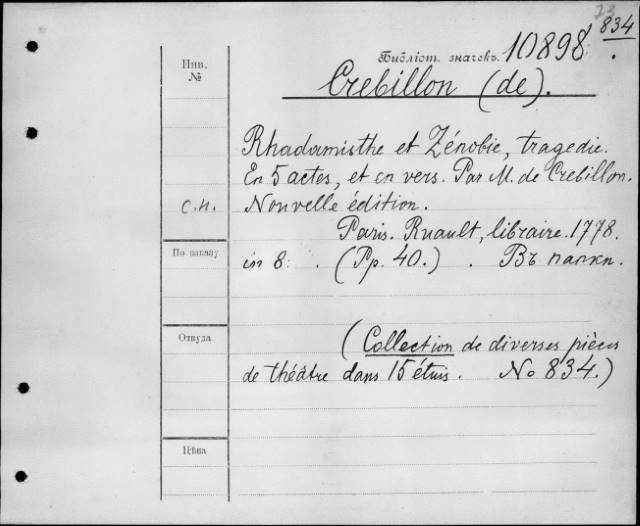 834
Библіот. значекъ. 10898.
Инв.
№
Crebillon (de).
Rhadamisthe et Zénobie, tragedie.
En 5 actes, et en vers. Par M. de Crebillon.
С.Н. Nouvelle édition.
Paris. Ruault, libraire. 1778.
in 8. (Pp. 40.) Въ папкѣ.
По каталу
Откуда
(Collection de diverses pièces
de théâtre dans 15 étuis. No 834.)
Цѣна